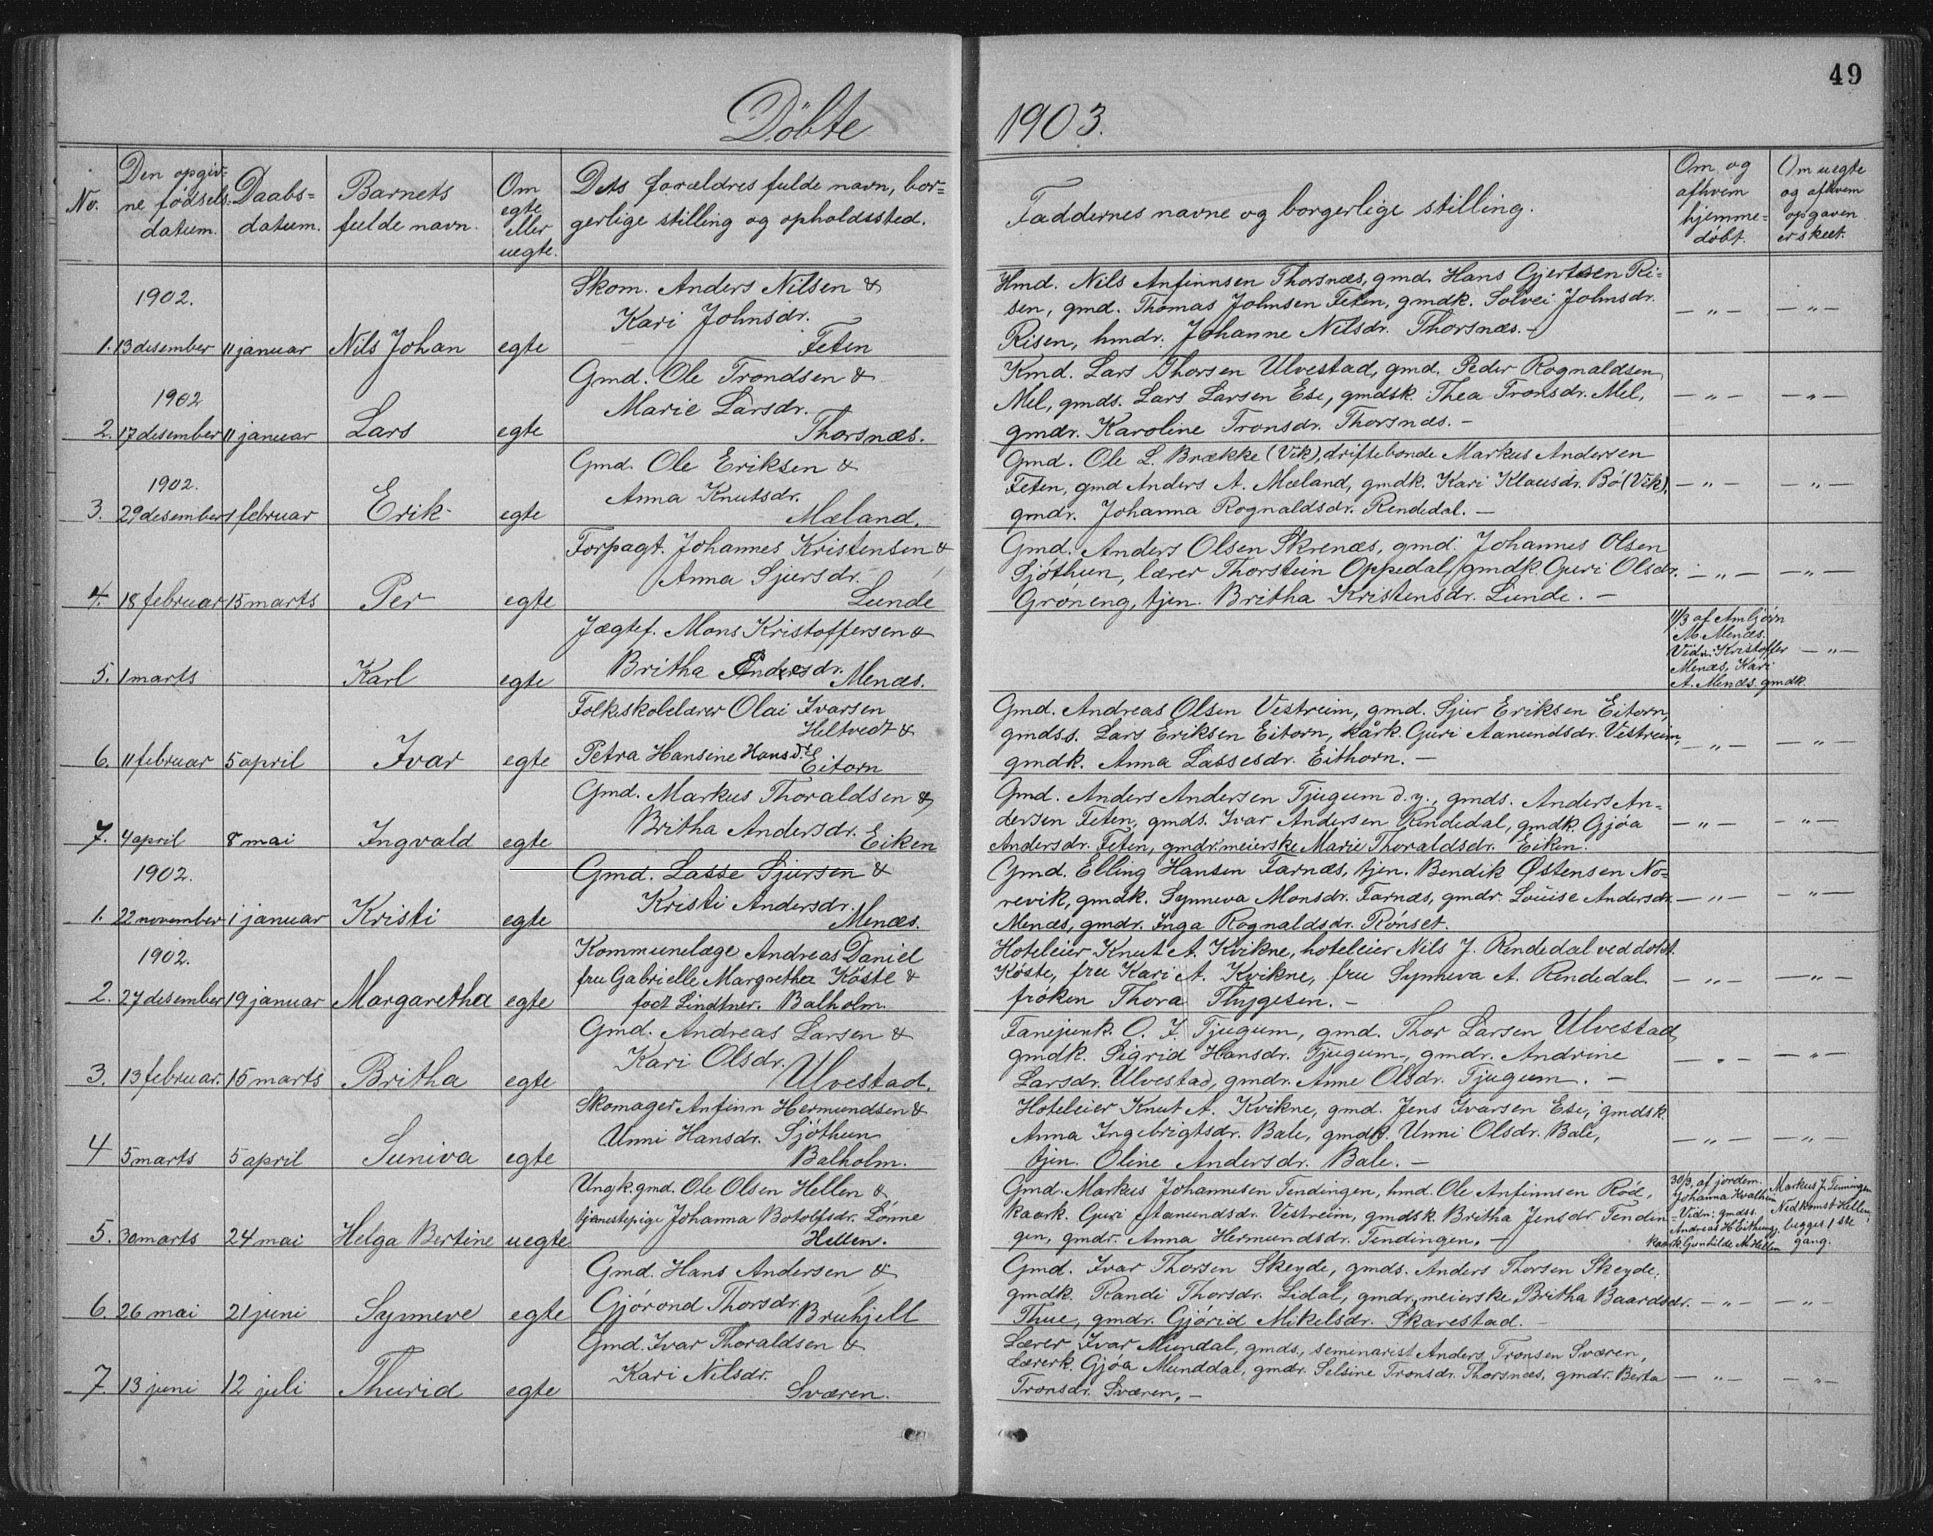 49
Döbte 1903.
No.
Den opgiv-
ne fødsels-
datum.
Daabs-
datum.
Barnets
fulde navn.
Om
egte
eller
uegte.
Dets forældres fulde navn, bor-
gerlige stilling og opholdssted.
Faddernes navne og borgerlige stilling.
Om og
afhvem
hjemme-
døbt.
Om uegte
og afhvem
opgaven
er skeet.
1902.
1. 13 desember 11 januar Nils Johan egte
Skom. Anders Nilsen &
Kari Johnsdr.
Feten
Hmd. Nils Anfinnsen Thorsnæs, gmd. Hans Gjertsen Ri-
sen, gmd. Thomas Johnsen Feten, gmdk. Solvei Johnsdr.
Risen, hmdr. Johanne Nilsdr. Thorsnæs. —
— „ — — „ —
1902
2. 17 desember 11 januar Lars egte
Gmd. Ole Trondsen &
Marie Larsdr.
Thorsnæs.
Kmd. Lars Thorsen Ulvestad, gmd. Peder Rognaldsen
Mel, gmds. Lars Larsen Ese, gmdsk. Thea Tronsdr. Mel,
gmdr. Karoline Tronsdr. Thorsnæs. —
— „ — — „ —
1902.
3. 29 desember 1 februar Erik egte
Gmd. Ole Eriksen &
Anna Knutsdr.
Mæland.
Gmd. Ole L. Brække (Vik), driftebonde Markus Andersen
Feten, gmd Anders A. Mæland, gmdk. Kari Klausdr. Bö (Vik),
gmdr. Johanna Rognaldsdr. Rendedal. —
— „ — — „ —
4. 18 februar 15 marts Per egte
Forpagt. Johannes Kristensen &
Anna Sjursdr.
Lunde
Gmd. Anders Olsen Skrenæs, gmd. Johannes Olsen
Sjöthun, lærer Thorstein Oppedal, gmdk. Guri Olsdr.
Gröneng, tjen. Britha Kristensdr. Lunde. —
— „ — — „ —
5. 1 marts Karl egte
Jægtef. Mons Kristoffersen &
Britha Andersdr. Menæs.
11/3 af Amljørn
M. Menæs.
Vidn: Kristoffer
Menæs, Kari
A. Menæs. gmdk.
— „ —
6. 11 februar 5 april Ivar egte
Folkeskolelærer Olai Ivarsen
Heltvedt &
Petra Hansine Hansdtr
Eitorn
Gmd. Andreas Olsen Vestreim, gmd. Sjur Eriksen Eitorn,
gmdss. Lars Eriksen Eitorn, kårk. Guri Aamundsdr. Vestreim,
gmdk. Anna Lassesdr. Eithorn. —
— „ — — „ —
7. 4 april 8 mai Ingvald egte
Gmd. Markus Thoraldsen &
Britha Andersdr.
Eiken
Gmd. Anders Andersen Tjugum d.y., gmds. Anders An-
dersen Feten, gmds. Ivar Andersen Rendedal, gmdk. Gjøa
Andersdr. Feten, gmdr. meierske Marie Thoraldsdr. Eiken.
— „ — — „ —
1902.
1. 22 november 1 januar Kristi egte
Gmd. Lasse Sjursen &
Kristi Andersdr.
Menæs.
Gmd. Elling Hansen Farnæs, tjen. Bendik Østensen No-
revik, gmdk. Synneva Monsdr. Farnæs, gmdr. Louise Andersdr.
Menæs, gmdr. Inga Rognaldsdr. Rönset.
— „ — — „ —
1902.
2. 27 desember 19 januar Margaretha egte
Kommunelæge Andreas Daniel
fru Gabrielle Margretha Köste &
født Lindtner. Balholm.
Hoteleier Knut A. Kvikne, hoteleier Nils J. Rendedal ved
Köste, fru Kari A. Kvikne, fru Synneva A. Rendedal.
fröken Thora Thygesen. —
— „ — — „ —
3. 13 februar. 15 marts Britha egte
Gmd. Andreas Larsen &
Kari Olsdr.
Ulvestad.
Fanejunk. O. J. Tjugum, gmd. Thor Larsen Ulvestad,
gmdk. Sigrid Hansdr. Tjugum, gmdr. Andrine
Larsdr. Ulvestad, gmdr. Anne Olsdr. Tjugum. —
— „ — — „ —
4 5 marts 5 april Suniva egte
Skomager Anfinn Hermundsen &
Unni Hansdr. Sjöthun
Balholm.
Hoteleier Knut A. Kvikne, gmd. Jens Ivarsen Ese, gmdsk.
Anna Ingebrigtsdr. Bale, gmdk. Unni Olsdr. Bale,
tjen. Oline Andersdr. Bale. —
— „ — — „ —
5. 30 marts 24 mai Helga Bertine uegte
Ungk. gmd. Ole Olsen Hellen &
tjenestepige Johanna Botolfsdr. Lønne
Hellen.
Gmd. Markus Johannesen Tendingen, hmd. Ole Anfinnsen Röd,
kaark. Guri Aamundsdr. Vestreim, gmdsk. Britha Jensdr. Tendin-
gen, gmdr. Anna Hermundsdr. Tendingen. —
30/3, af jordem.
Johanna Kvalheim
Vidn: gmdss.
Andreas H. Eithung,
kaark. Gunhilde M. Hellen
Markus J. Tenningen
Nedkomst Hellen,
begges 1ste
gang.
6. 26 mai 21 juni Synneve egte
Gmd. Hans Andersen &
Gjörond Thorsdr.
Bruhjell
Gmd. Ivar Thorsen Skeyde, gmds. Anders Thorsen Skeyde,
gmdk. Randi Thorsdr. Lidal, gmdr. meierske Britha Baardsdr.
Thue, gmdr. Gjörid Mikelsdr. Skarestad. —
— „ — — „ —
7 13 juni 12 juli Thurid egte
Gmd. Ivar Thoraldsen &
Kari Nilsdr.
Sværen.
Lærer Ivar Mundal, gmds, seminarist Anders Tronsen Sværen,
Lærerk. Gjøa Munddal, gmdr. Selsine Tronsdr. Thorsnæs, gmdr. Berta
Tronsdr. Sværen. —
— „ — — „ —